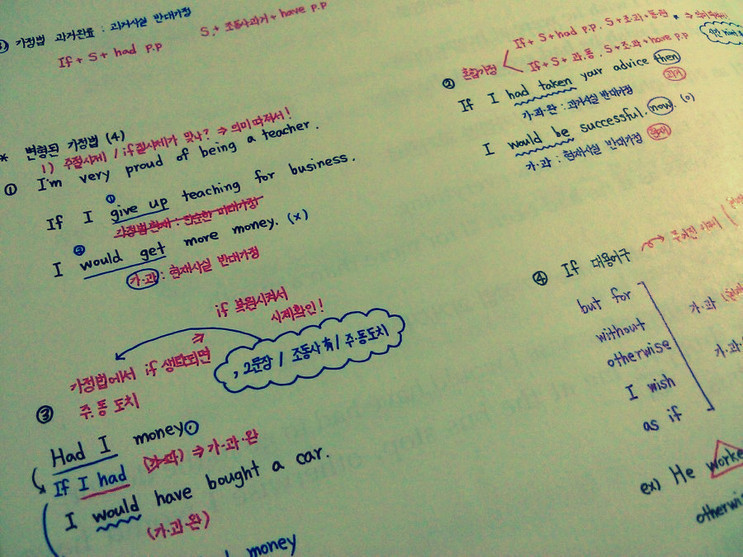 가정법 과거완료 : 과거사실 반대가정
If + S + had p.p S + 조동사과거 + have p.p
* 변형된 가정법 (4)
1) 주절시제 / if절시제가 맞나? ⇒ 의미따져서!
① I'm very proud of being a teacher.
①
If I give up teaching for business.
가정법현재 : 단순한 미래가정
②
I would get more money. (x)
가·과 : 현재사실 반대가정
if 복원시켜서
시제확인!
, 2문장 / 조동사 有 / 주·동도치
가정법에서 if 생략되면
주·동 도치
③
Had I money
If I had (가·과) ⇒ 가·과·완
I would have bought a car.
(가·과·완)
money
② 혼합가정
If + S + had p.p. S + 조·과 + 동원
If + S + 과·동. S + 조·과 + have p.p
If I had taken your advice then
가·과·완 : 과거사실 반대가정 과거
I would be successful. now. (o)
가·과 : 현재사실 반대가정 현재
④ If 대용어구
but for
without
otherwise
I wish
as if
가·과
가·과·
ex) He worke
otherwis